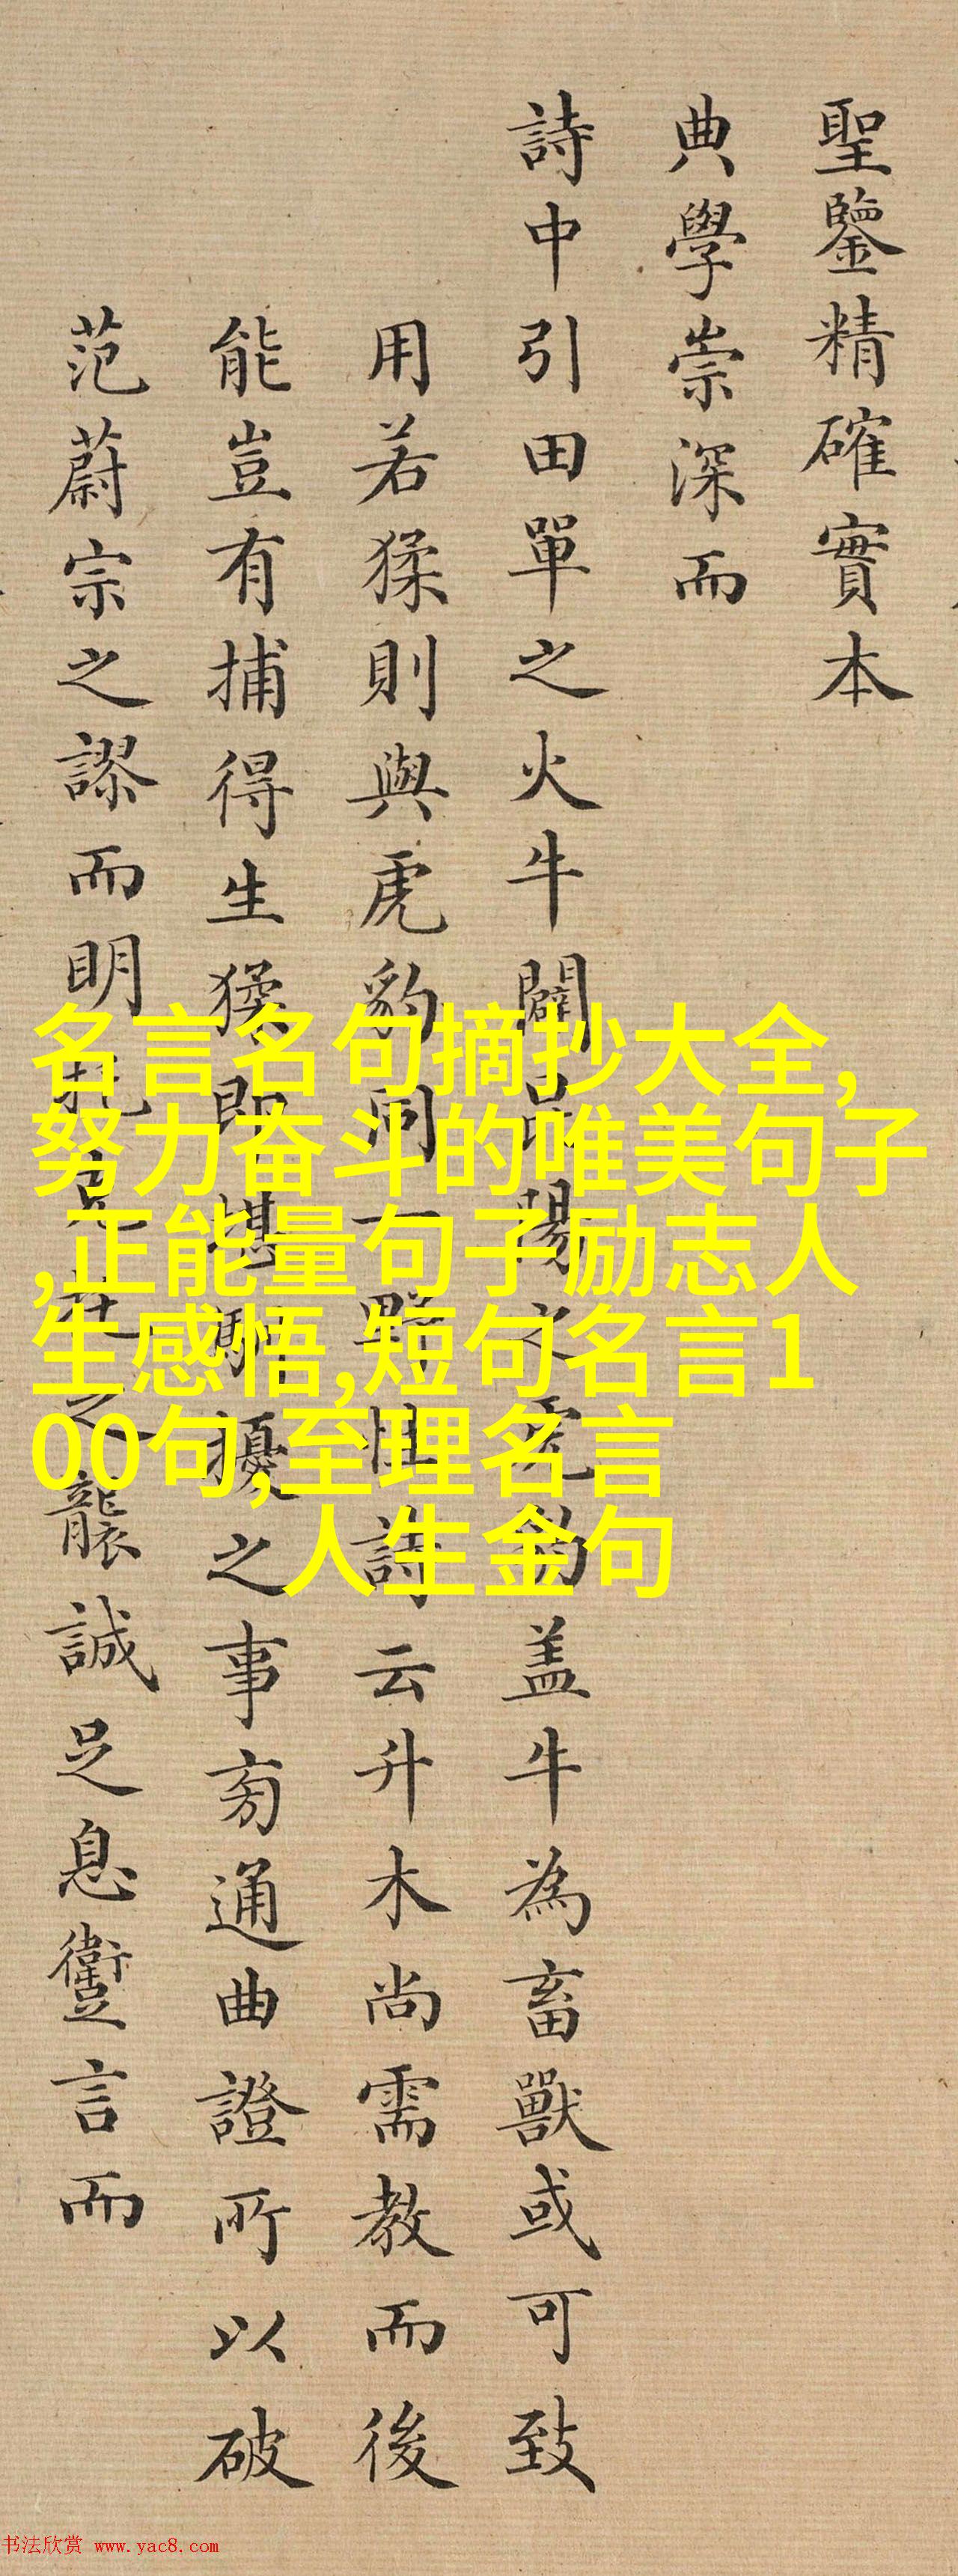 聖鑒精確實本
典學崇深而
詩中引田單之火牛闢陽之虎豹盖牛為畜獸或可致
用若猱則與虎豹同一野性詩云升木尚需教而後
能豈有捕得生猱即堪馴擾之事旁通曲證所以破
范蔚宗之謬而明托克托之襲誠足息躗言而
名言名句摘抄大全,
努力奋斗的唯美句子
,正能量句子励志人
生感悟,短句名言1
00句,至理名言
人生金句
书法欣赏 www.yac8.com